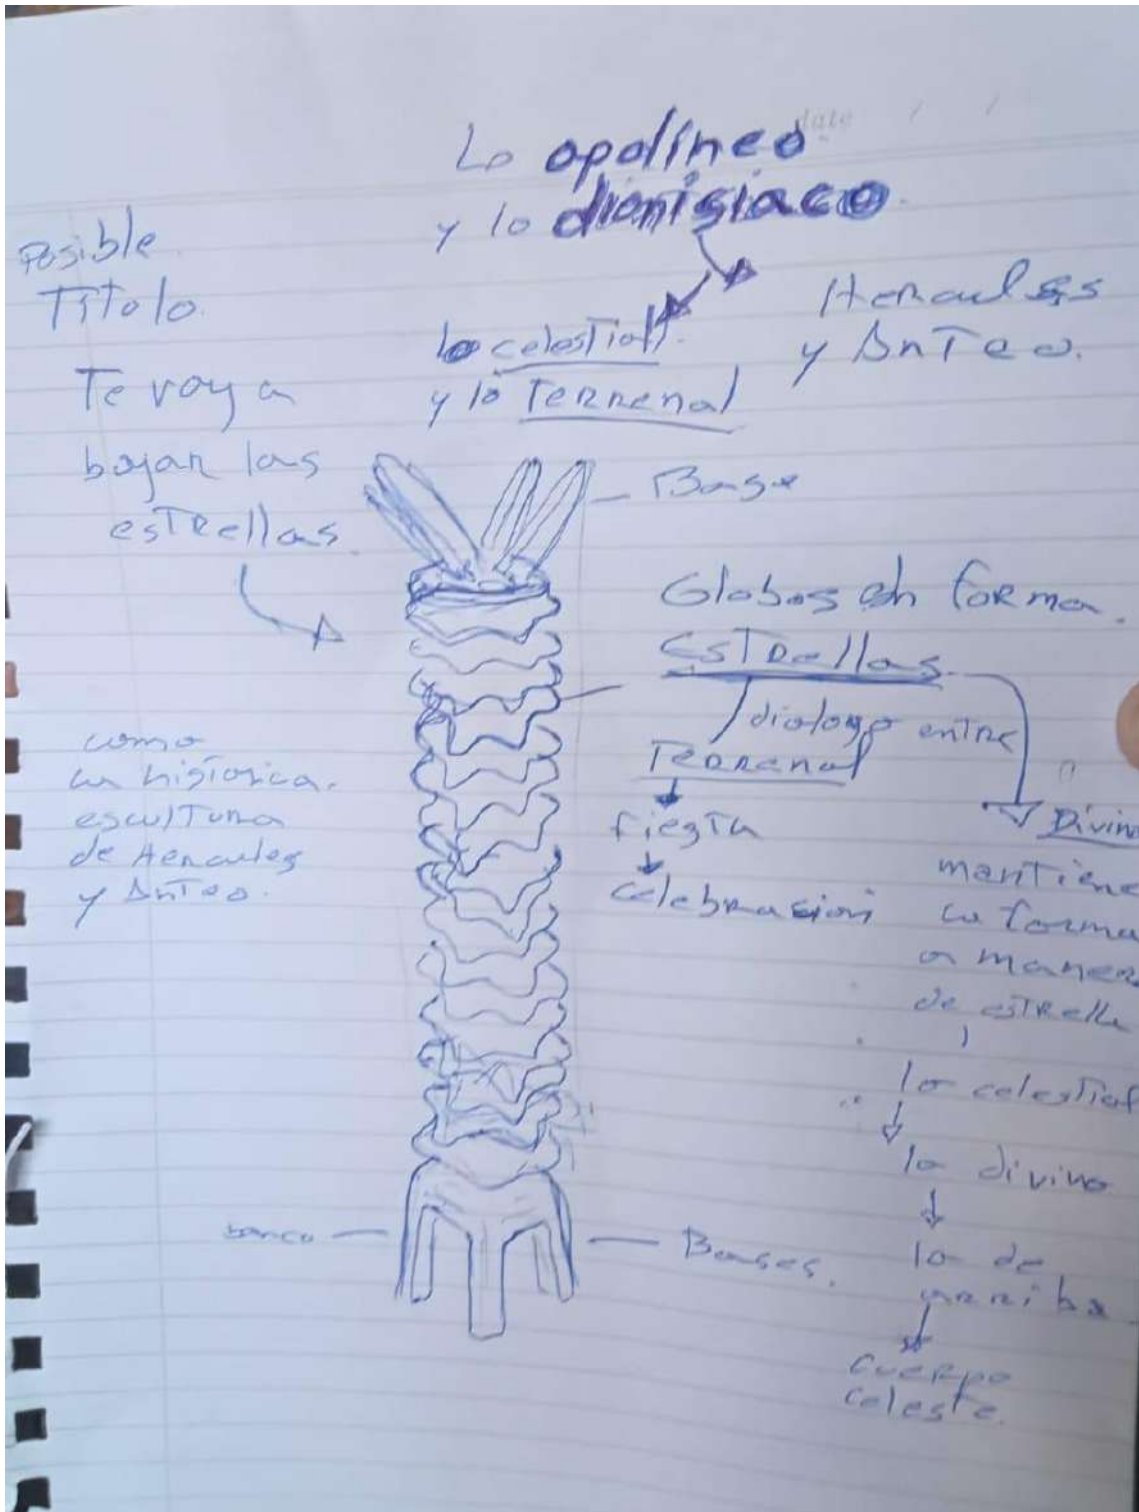 date / /
Lo apolíneo
y lo dionisiaco.
Posible
Título.
Te voy a
bajar las
estrellas.
lo celestial.
y lo Terrenal
Herculess
y AnTeo.
Base
Globos en forma.
EsTRellas.
dialogo entre
Terrenal
fiesta
celebrasion
Divino
mantiene
la forma
a manera
de estrella
lo celestial
lo divino
lo de
arriba
cuerpo
celeste.
como
la historica.
esculTura
de Hercules
y AnTeo.
banco
Bases.